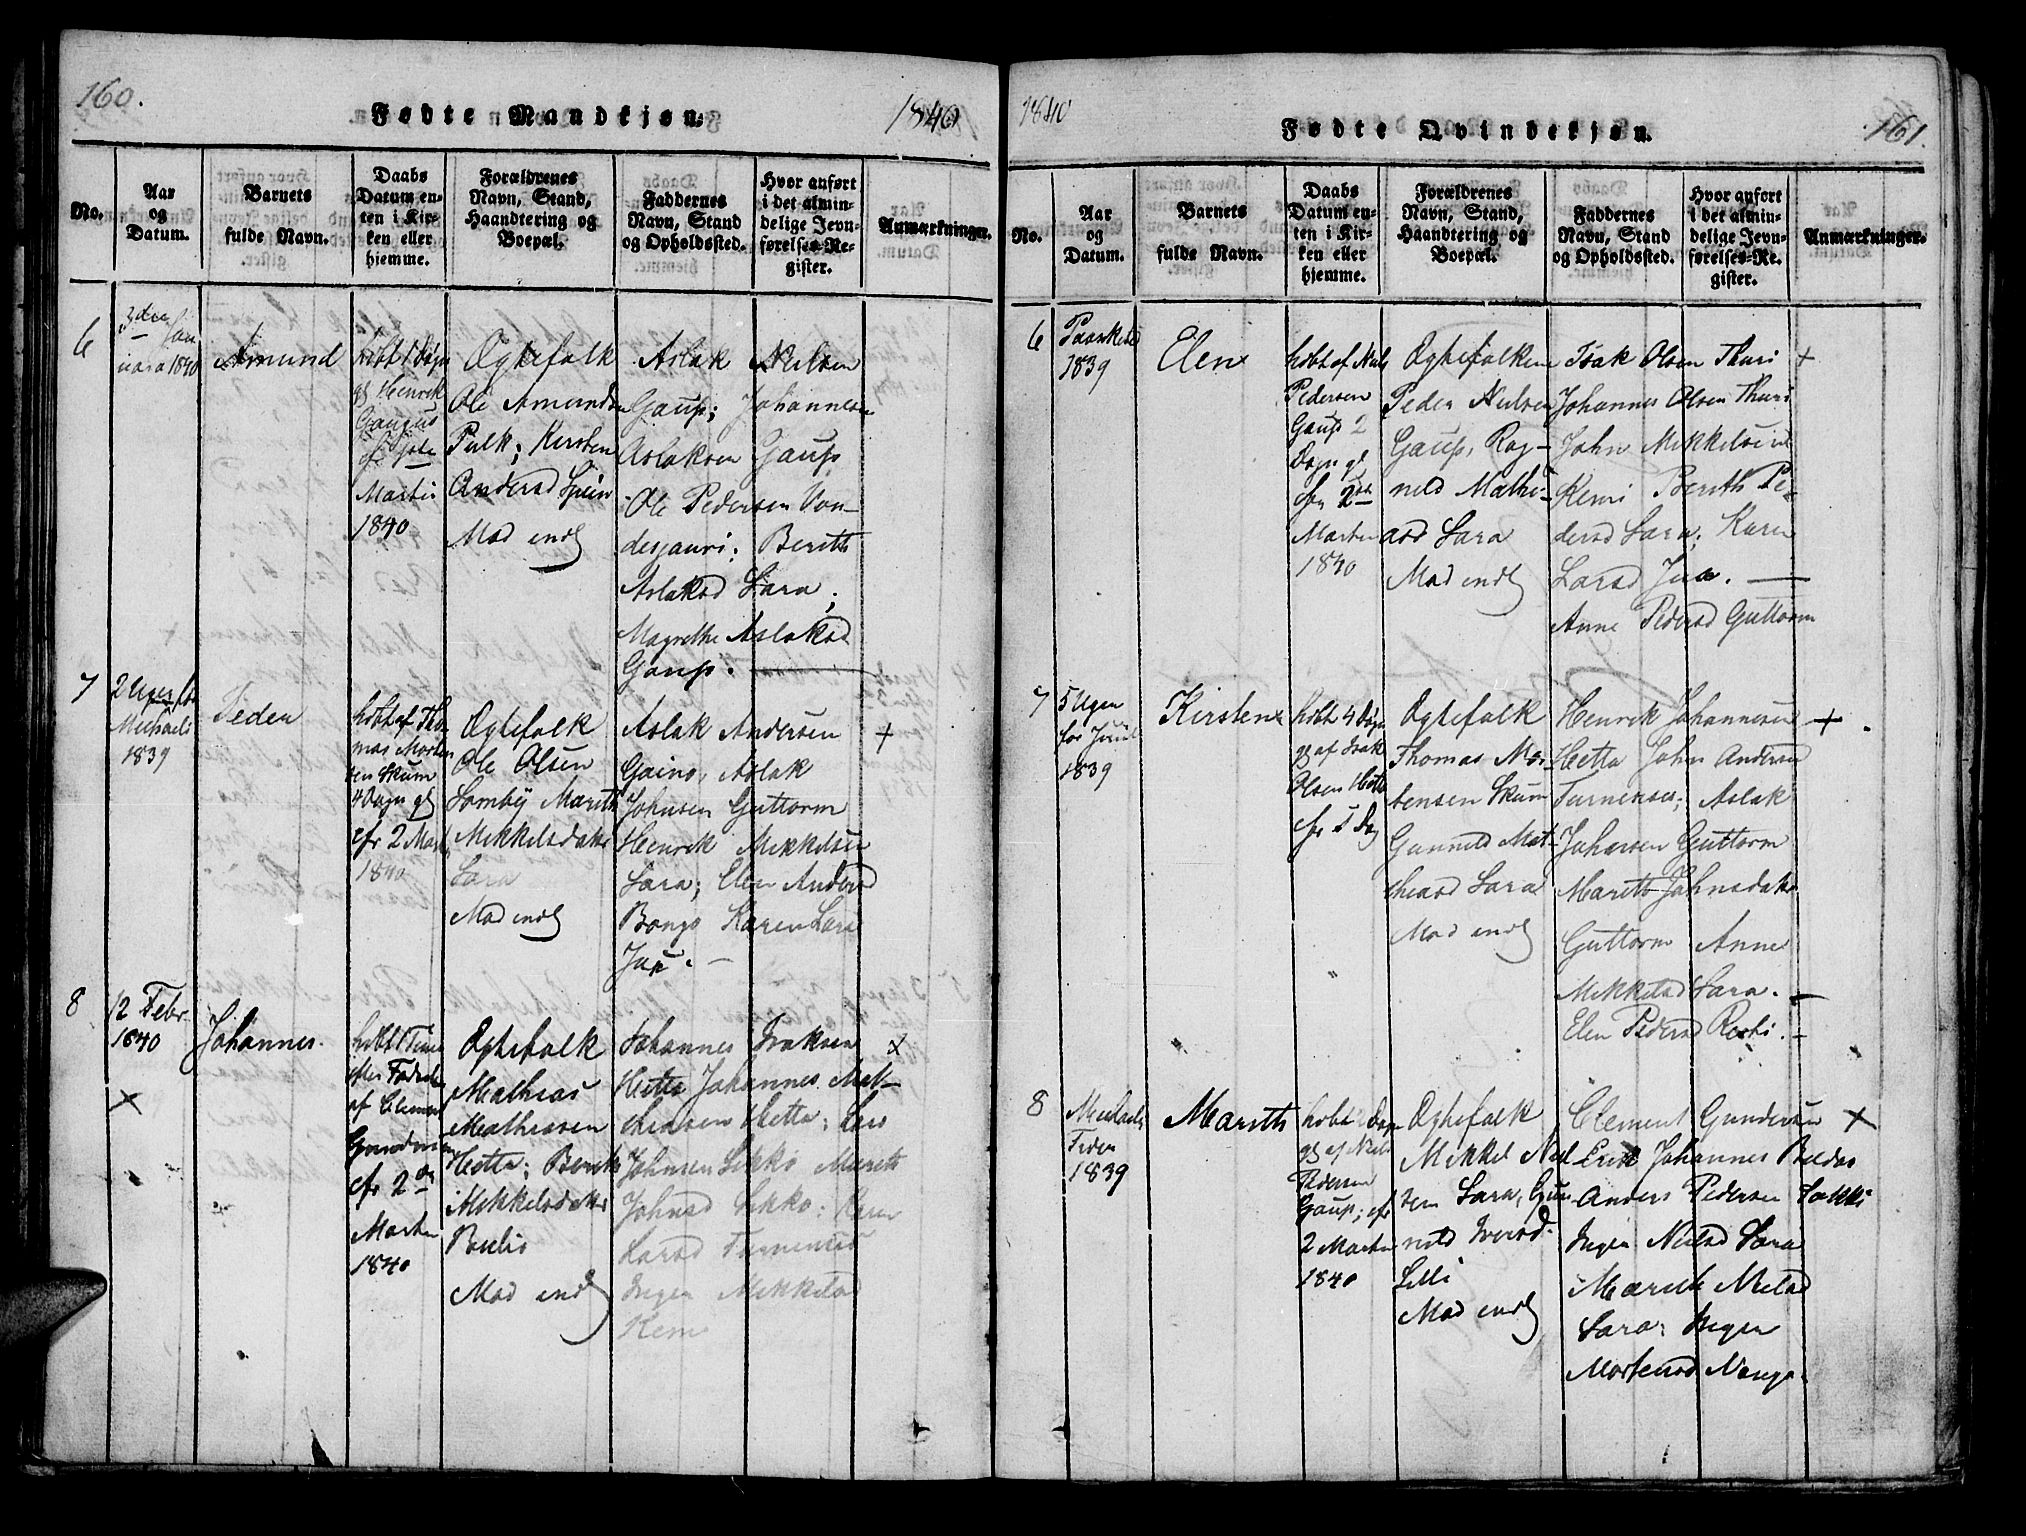 160.
Fødte Mandkjøn.
1840
No.
Aar
og
Datum.
Barnets
fulde Navn.
Daabs
Datum en-
ten i Kir-
ken eller
hjemme.
Forældrenes
Navn, Stand,
Haandtering og
Boepæl.
Faddernes
Navn, Stand
og Opholdssted.
Hvor anført
i det almin-
delige Jevn-
førelses-Re-
gister.
Anmærkninger.
6
3die Jan
uara 1840
Amund
hibt 1 Dagn
gl Henrik
Marti
1840
Ægtefolk
Ole Amundsen
Pulk; Kirsten
Andersd Spein
Mad endl
Aslak Nilsen
Gaup; Johannesen
Aslaksen Gaup
Ole Pedersen Van-
desjauri; Berith
Aslaksd Sara;
Magrethe Aslaksd
Gaup.
7
2 Uger for
Michaeli
1839
Peder
hibt af Tho
mas Morten
sen Skum
4 Dagn gl
cfr 2 Mart
1840
Ægtefolk
Ole Olsen
Somby Marith
Mikkelsdater
Sara
Mad endl
Aslak Andersen
Gaino, Aslak
Johnsen Guttorm
Henrik Mikkelsen
Sara; Elen Andersd
Bongo Karen Lars
+
8
12 Febr.
1840
Johannes.
hibt 1 Time
efter Fødselen
af Clement
Gundersen
cfr 2den
Marten
1840
Ægtefolk
Mathias
Mathiasen
Hetta; Berith
Mikkelsdater
Poulio
Mad endl
Johannes Isaksen
Hetta Johannes Mat-
thiasen Hetta; Lars
Johnsen Sikko Marith
Johnsd Sikko; Karen
Larsd Turnensis
Inger Mikkelsd
Kemi
x
x
1840
Fødte Qvindekjøn.
161.
No.
Aar
og
Datum.
Barnets
fulde Navn.
Daabs
Datum en-
ten i Kir-
ken eller
hjemme.
Forældrenes
Navn, Stand,
Haandtering og
Boepæl.
Faddernes
Navn, Stand
og Opholdssted.
Hvor anført
i det almin-
delige Jevn-
førelses-Re-
gister.
Anmærkninger.
6
1839
Elen
hibt af Nils
Pedersen
Gaup 2
Dagn gl
cfr 2den
Marten
1840
Ægtefolkene
Peder Nilsen
Gaup, Rag-
nild Mathi-
asd Sara
Mad endl
Isak Olsen Thuri
Johannes Olsen Thuri
John Mikkelsen
Kemi Berith Pe-
dersd Sara; Karen
Larsd Juu. —
Anne Pedersd Guttorm
+
7
5 Ugen
for Juul
1839
Kirsten
hibt 4 Dagn
gl af Isak
Olsen Hetta
Ægtefolk
Thomas Mor-
tensen Skum
Gunneld Mat-
theasd Sara
Mad endl
Henrik Johannesen
Hetta John Andersen
Turnensis; Aslak
Johnsen Guttorm
Marith Johnsdater
Guttorm Anne
Mikkelsd Sara. —
Elen Pedersd
+
8
Michaels
Tiden
1839
Marith
hibt Dagn
gl af Niels
Pedersen
Gaup; cfr
2 Marten
1840
Ægtefolk
Mikkel Niel
sen Sara, Gun
nild Iversd.
Lilli
Mad endl
Clement Gundersen
Johannes
Anders Pedersen
Inger Nielsd Sara
Marith Nielsd
Sara. Inger
Mortensd Nango.
x